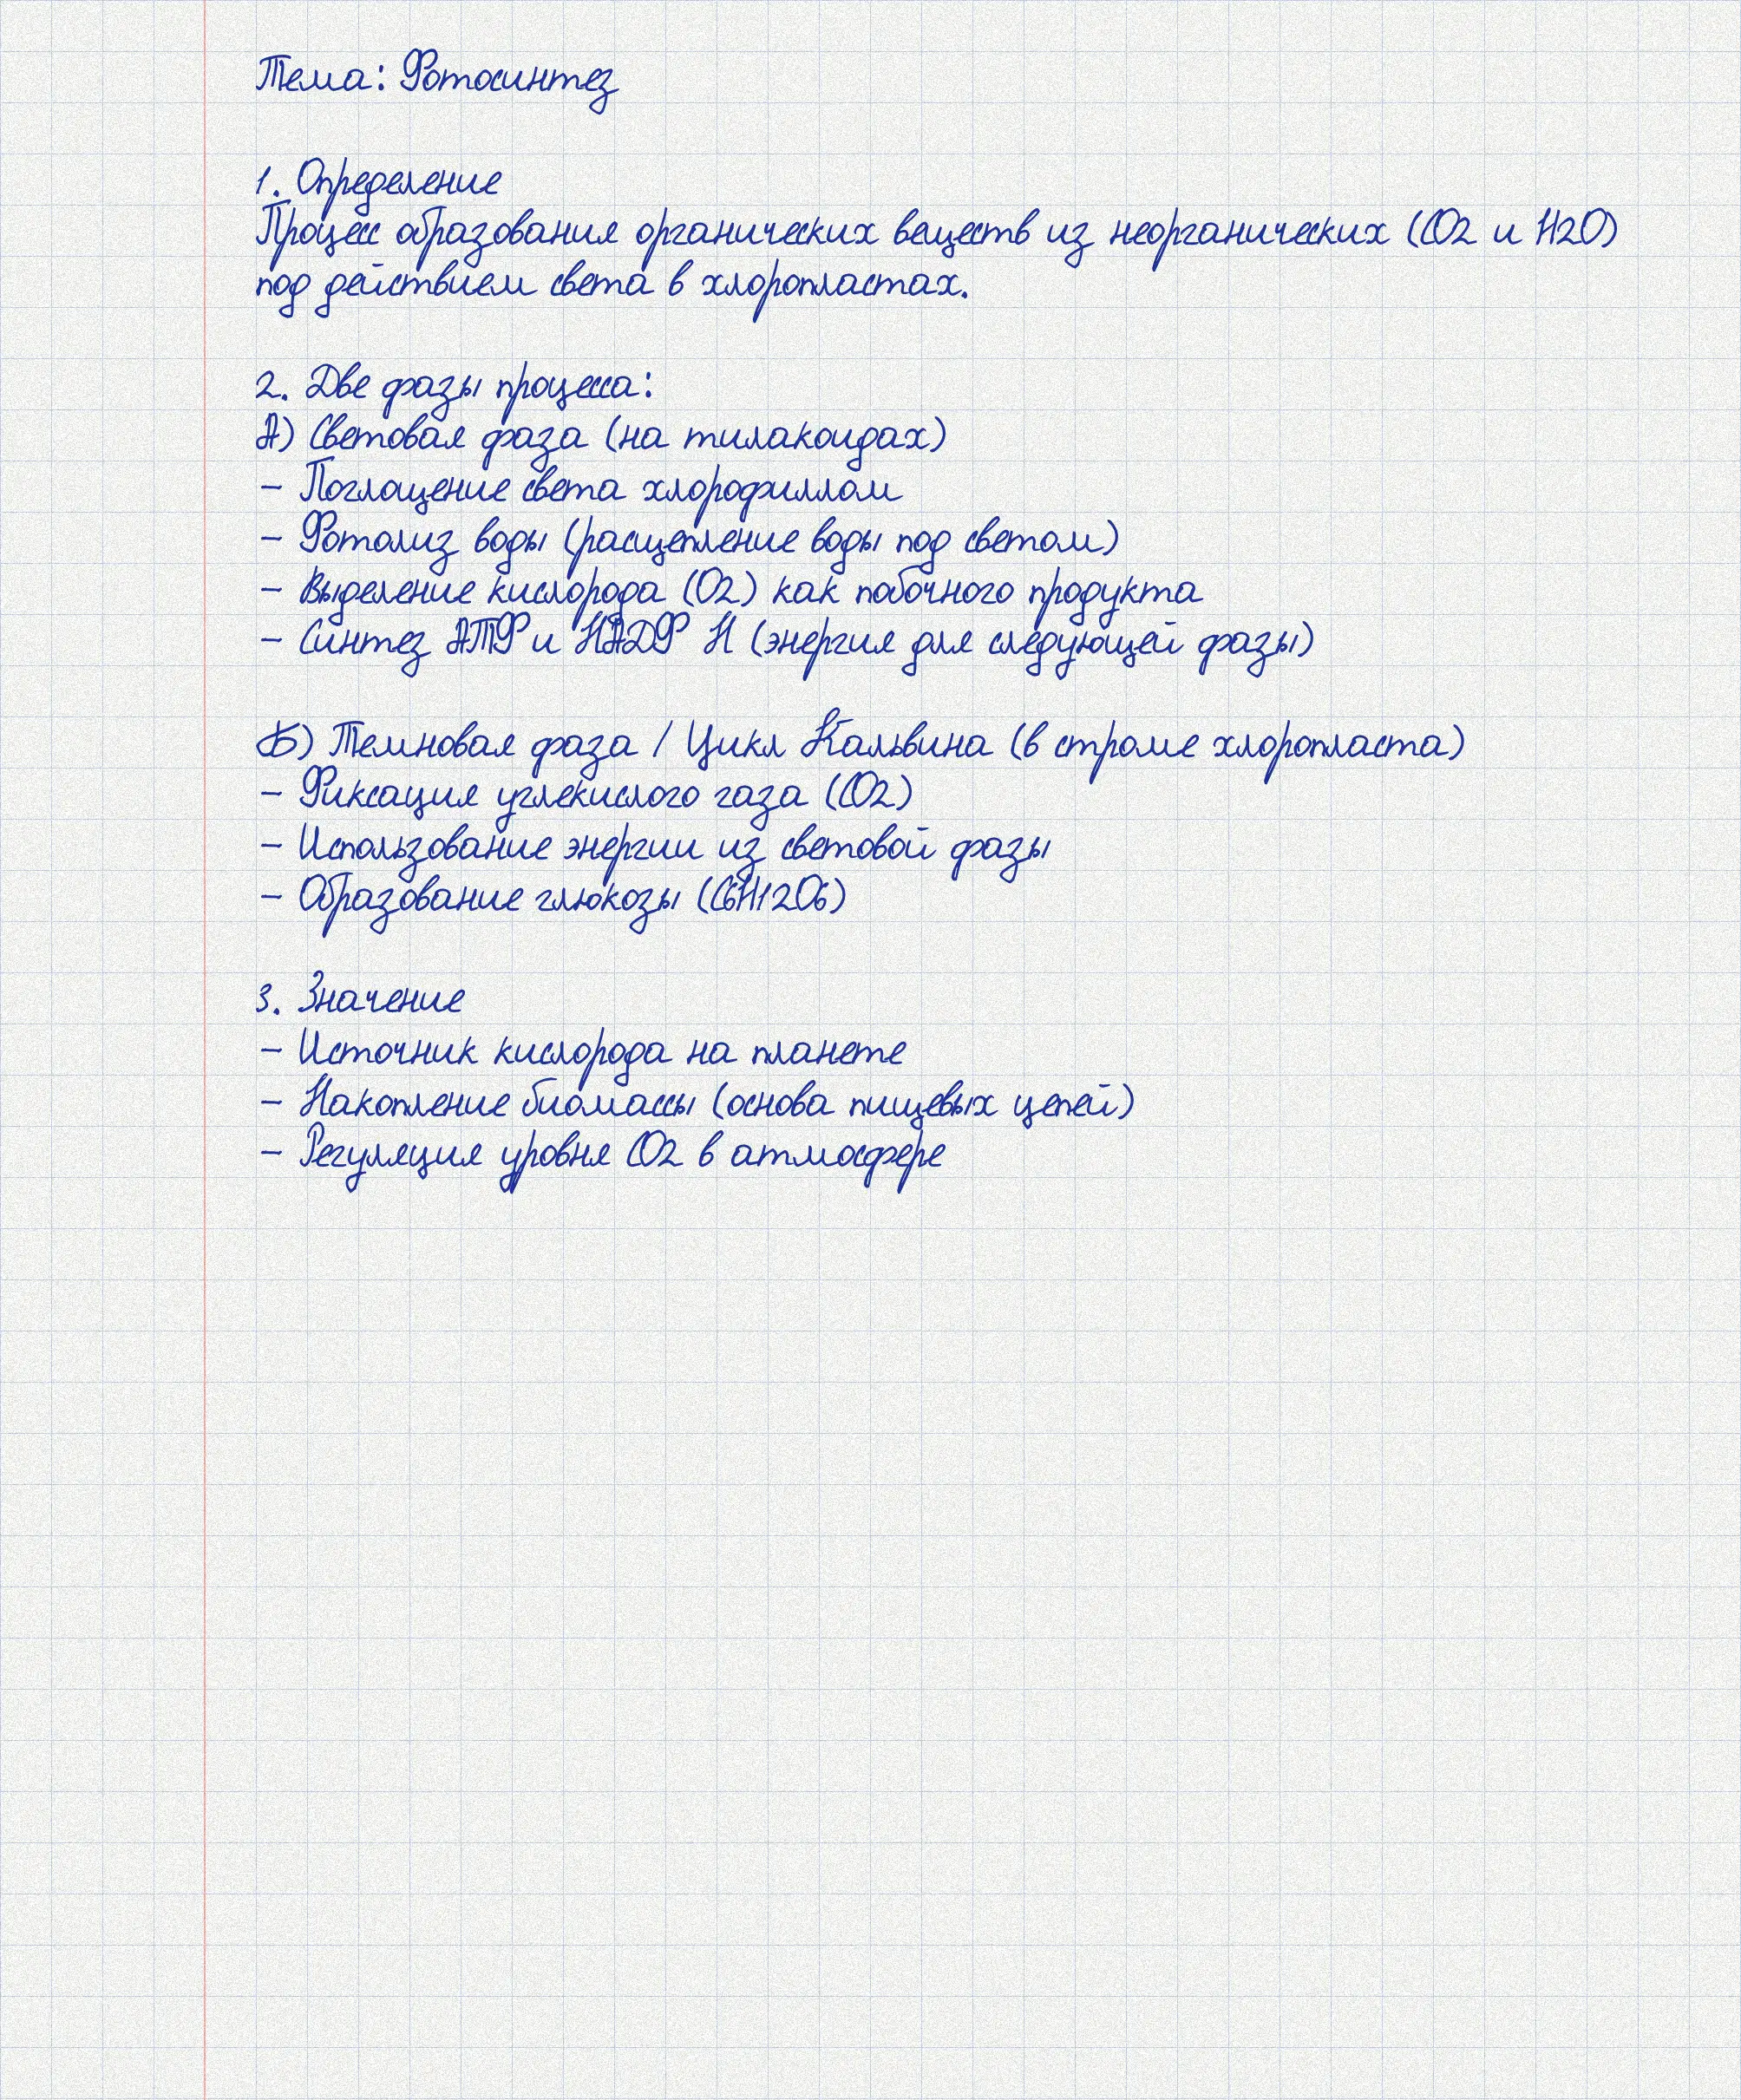 Тема: Фотосинтез
1. Определение
Процесс образования органических веществ из неорганических (CO2 и H2O)
под действием света в хлоропластах.
2. Две фазы процесса:
А) Световая фаза (на тилакоидах)
- Поглощение света хлорофиллом
- Фотолиз воды (расщепление воды под светом)
- Выделение кислорода (O2) как побочного продукта
- Синтез АТФ и НАДФ Н (энергия для следующей фазы)
Б) Темновая фаза / Цикл Кальвина (в строме хлоропласта)
- Фиксация углекислого газа (CO2)
- Использование энергии из световой фазы
- Образование глюкозы (C6H12O6)
3. Значение
- Источник кислорода на планете
- Накопление биомассы (основа пищевых цепей)
- Регуляция уровня CO2 в атмосфере